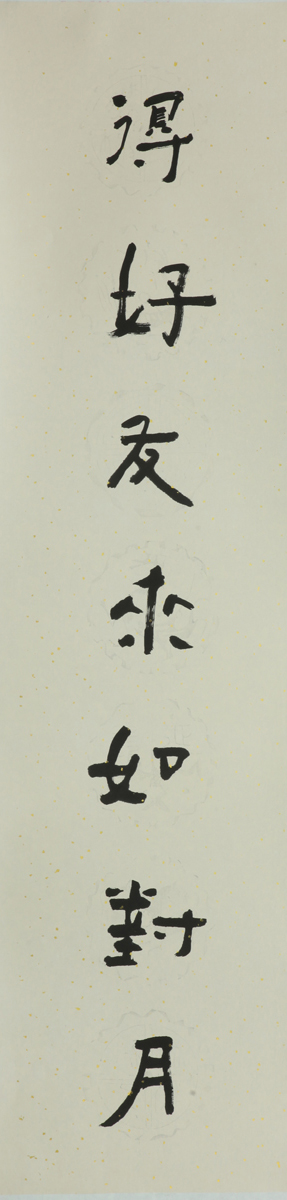 得好友來如對月